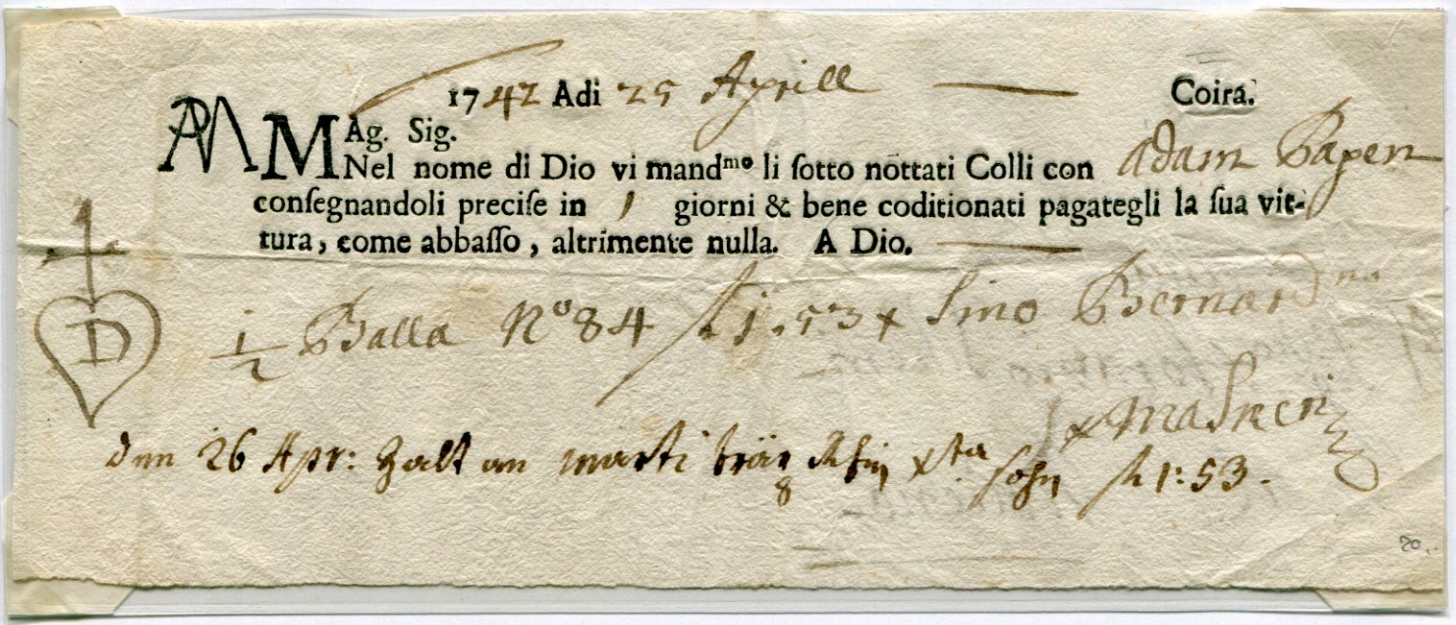 1742 Adi 25 Aprill Coira.
MAg. Sig.
Nel nome di Dio vi mandᵐᵒ li ſotto nottati Colli con Adam
conſegnandoli preciſe in 1 giorni & bene coditionati pagategli la ſua vit-
tura, come abbaſſo, altrimente nulla. A Dio.
D
1/2 Balla Nº 84 fl 1.53 x Sino Bernardⁿᵒ
den 26 Apr: Zalt an marti sohn fl 1:53.
20.-